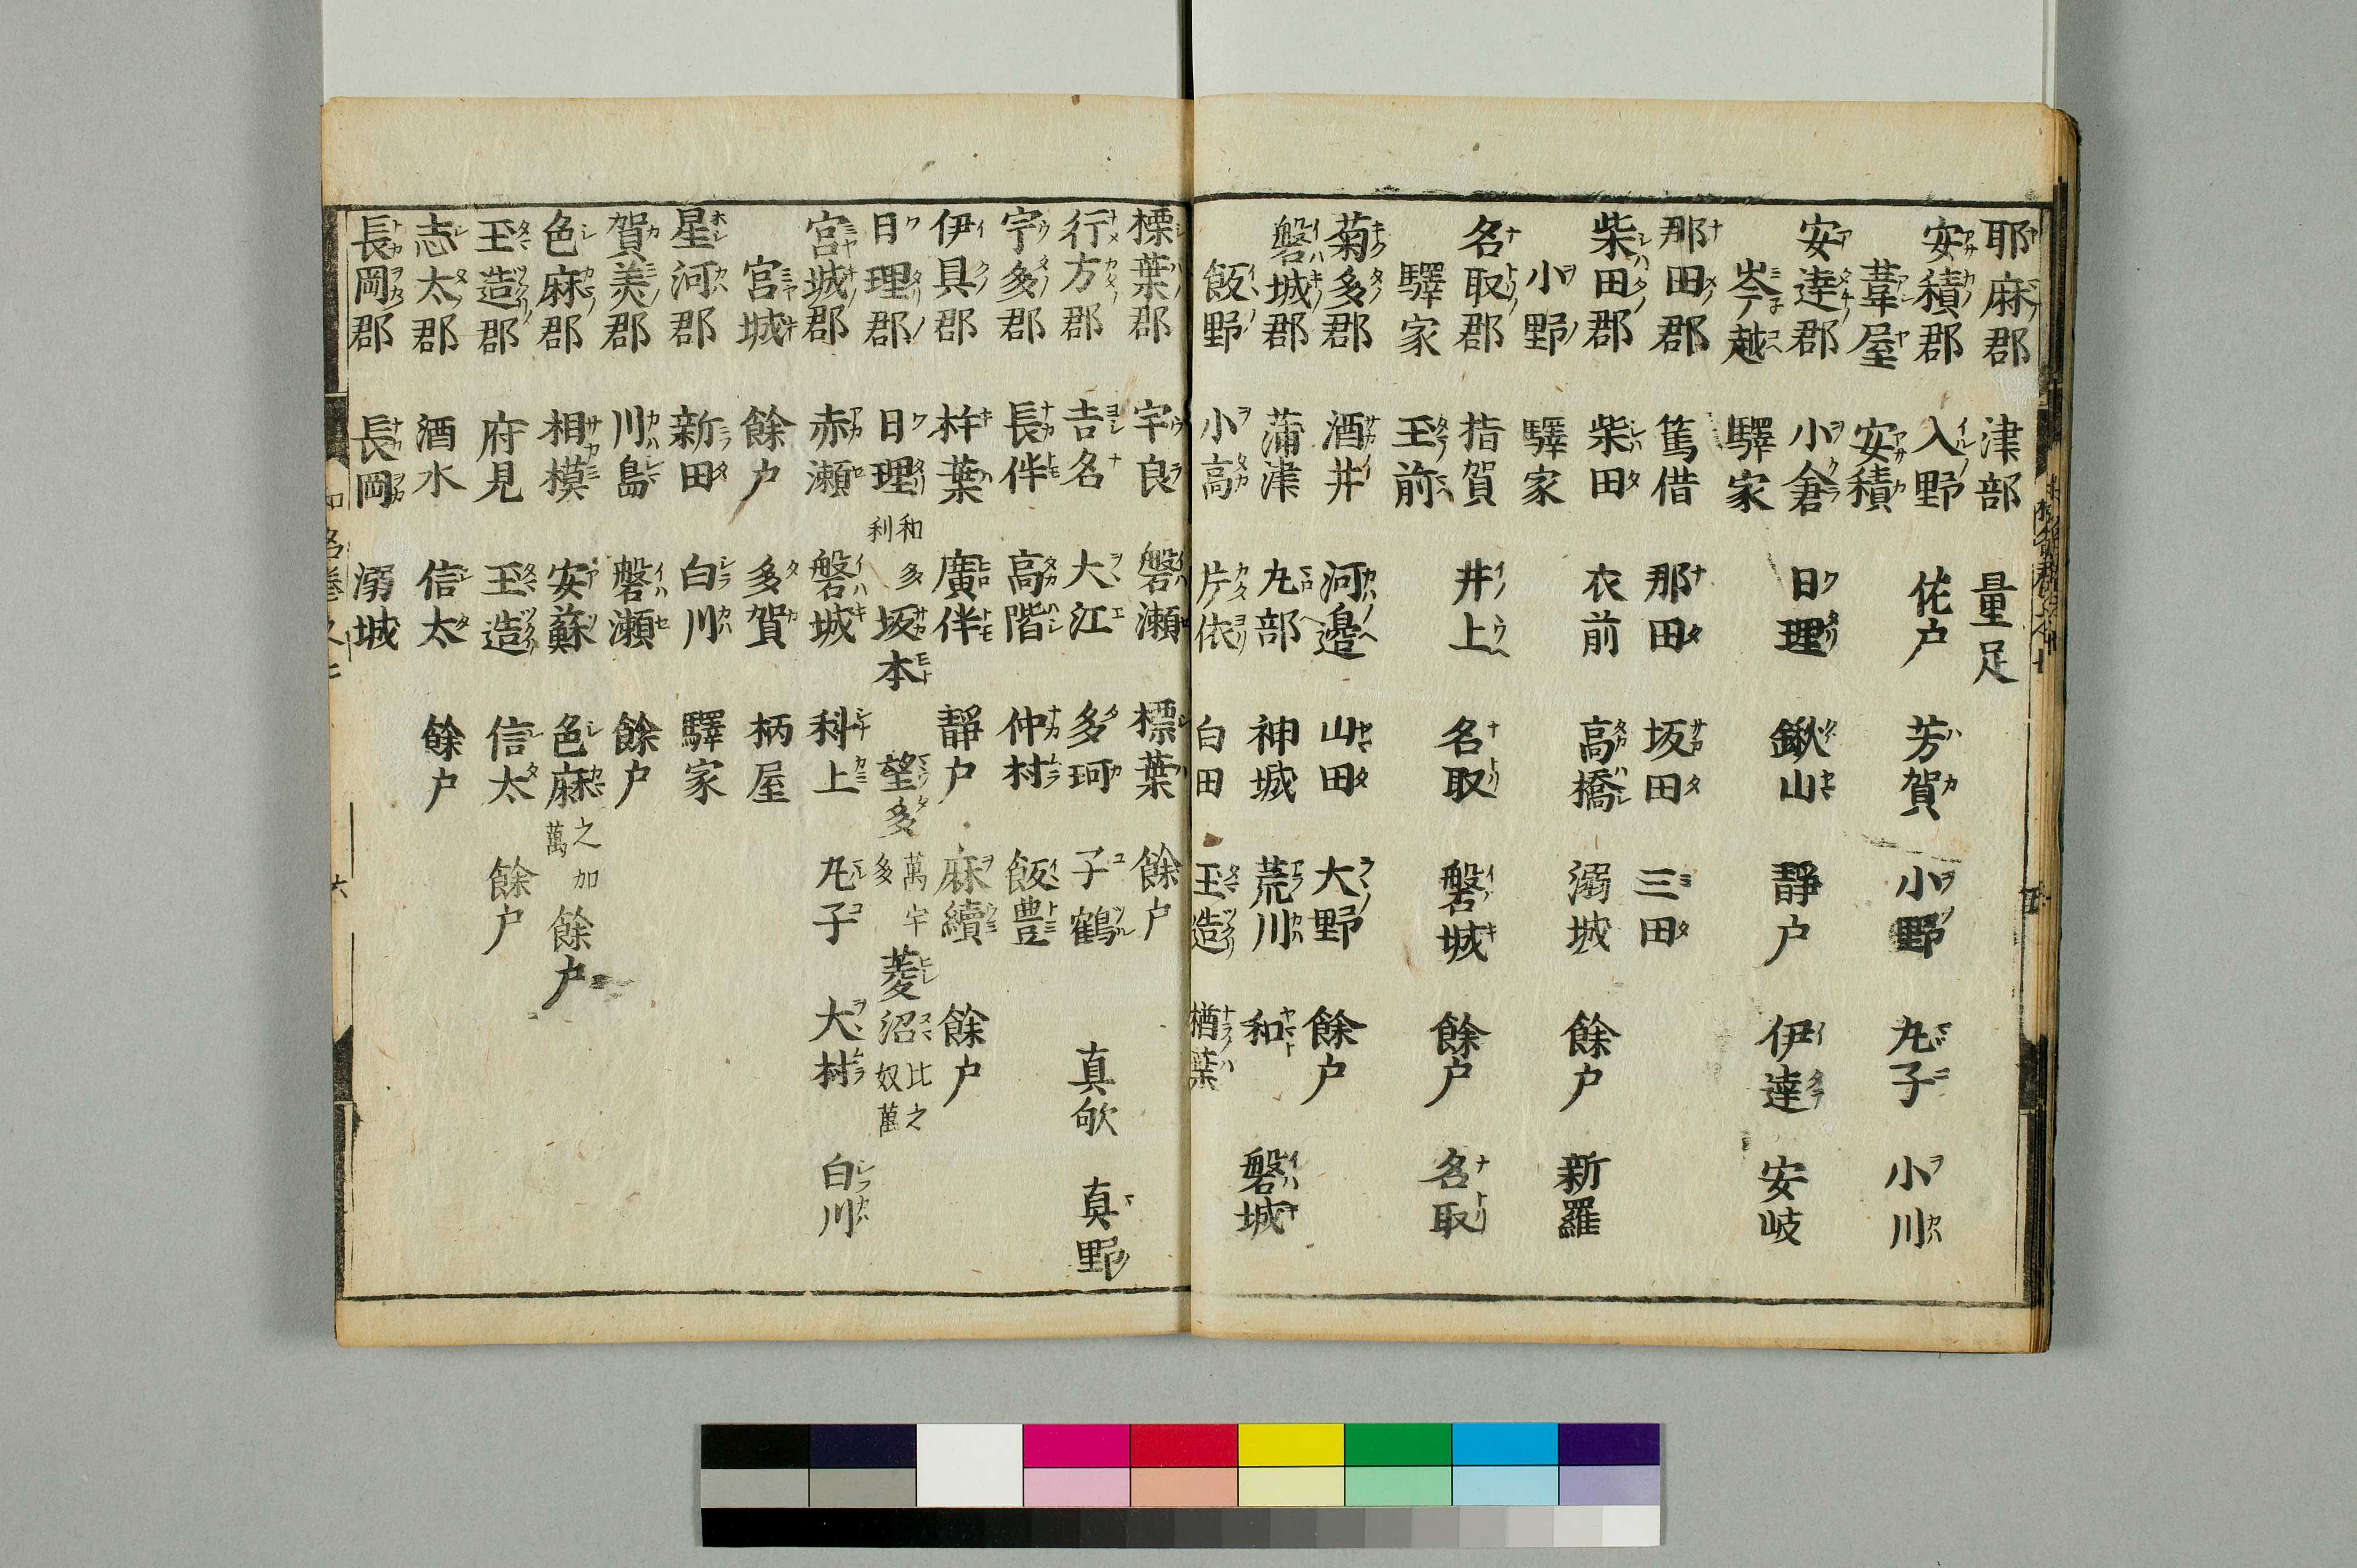 耶麻郡 津部 量足
安積郡 入野 佐戸 芳賀 小野 丸子 小川
葦屋 安積
安達郡 小倉 日理 鍬山 靜戸 伊達 安岐
岑越 驛家
那田郡 篤借 那田 坂田 三田
柴田郡 柴田 衣前 高橋 溺城 餘戸 新羅
小野 驛家
名取郡 指賀 井上 名取 磐城 餘戸 名取
驛家 玉前
菊多郡 酒井 河邉 山田 大野 餘戸
磐城郡 蒲津 丸部 神城 荒川 和 磐城
飯野 小高 片依 白田 玉造 楢葉
標葉郡 宇良 磐瀬 標葉 餘戸
行方郡 吉名 大江 多珂 子鶴 真欨 真野
宇多郡 長伴 高階 仲村 飯豊
伊具郡 杵葉 廣伴 靜戸 麻續 餘戸
日理郡 日理 和多利 坂本 望多 萬宇多 菱沼 比之奴萬
宮城郡 赤瀬 磐城 科上 丸子 大村 白川
宮城 餘戸 多賀 柄屋
星河郡 新田 白川 驛家
賀美郡 川島 磐瀬 餘戸
色麻郡 相模 安蘇 色麻 之加萬 餘戸
玉造郡 府見 玉造 信太 餘戸
志太郡 酒水 信太 餘戸
長岡郡 長岡 溺城
六